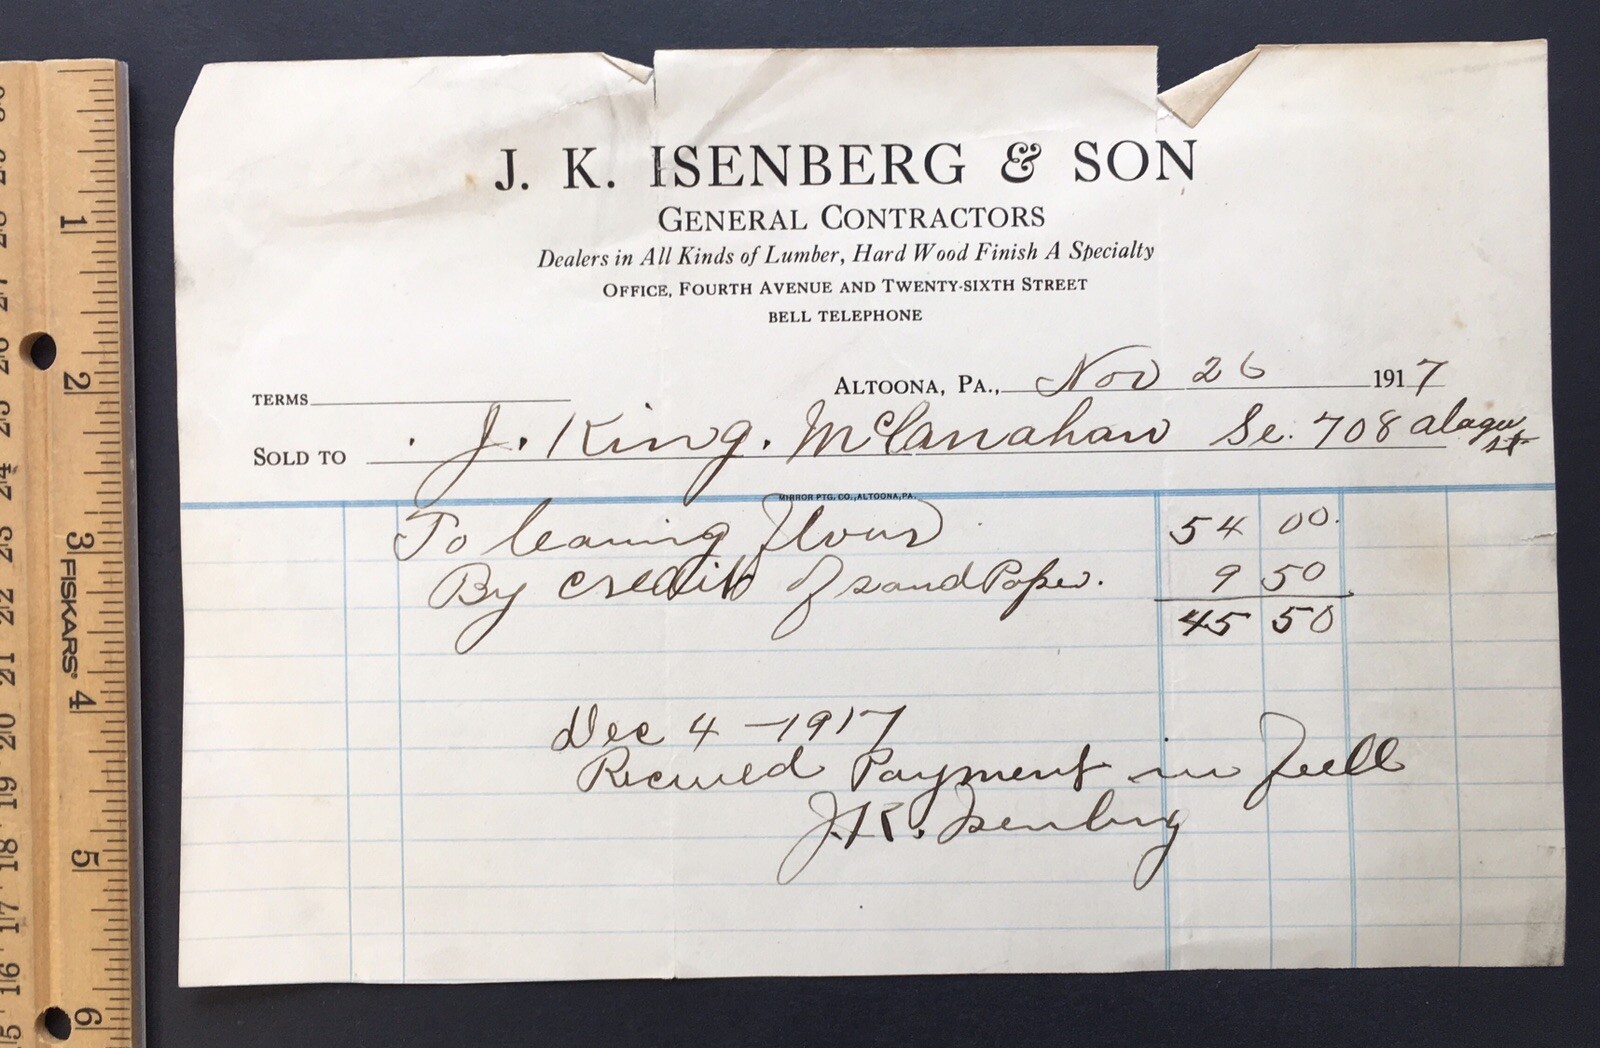 J. K. ISENBERG & SON
GENERAL CONTRACTORS
Dealers in All Kinds of Lumber, Hard Wood Finish A Specialty
OFFICE, FOURTH AVENUE AND TWENTY-SIXTH STREET
BELL TELEPHONE
TERMS
ALTOONA, PA., Nov 26 1917
SOLD TO J. King. McClanahan Se. 708 st
MIRROR PTG. CO., ALTOONA, PA.
To floor 54 00
By credit of sand Paper. 9 50
45 50
Dec 4 - 1917
Recived Payment in full
J.K. Isenberg
1
2
3
FISKARS
4
5
6
30
29
28
27
26
25
24
23
22
21
20
19
18
17
16
15